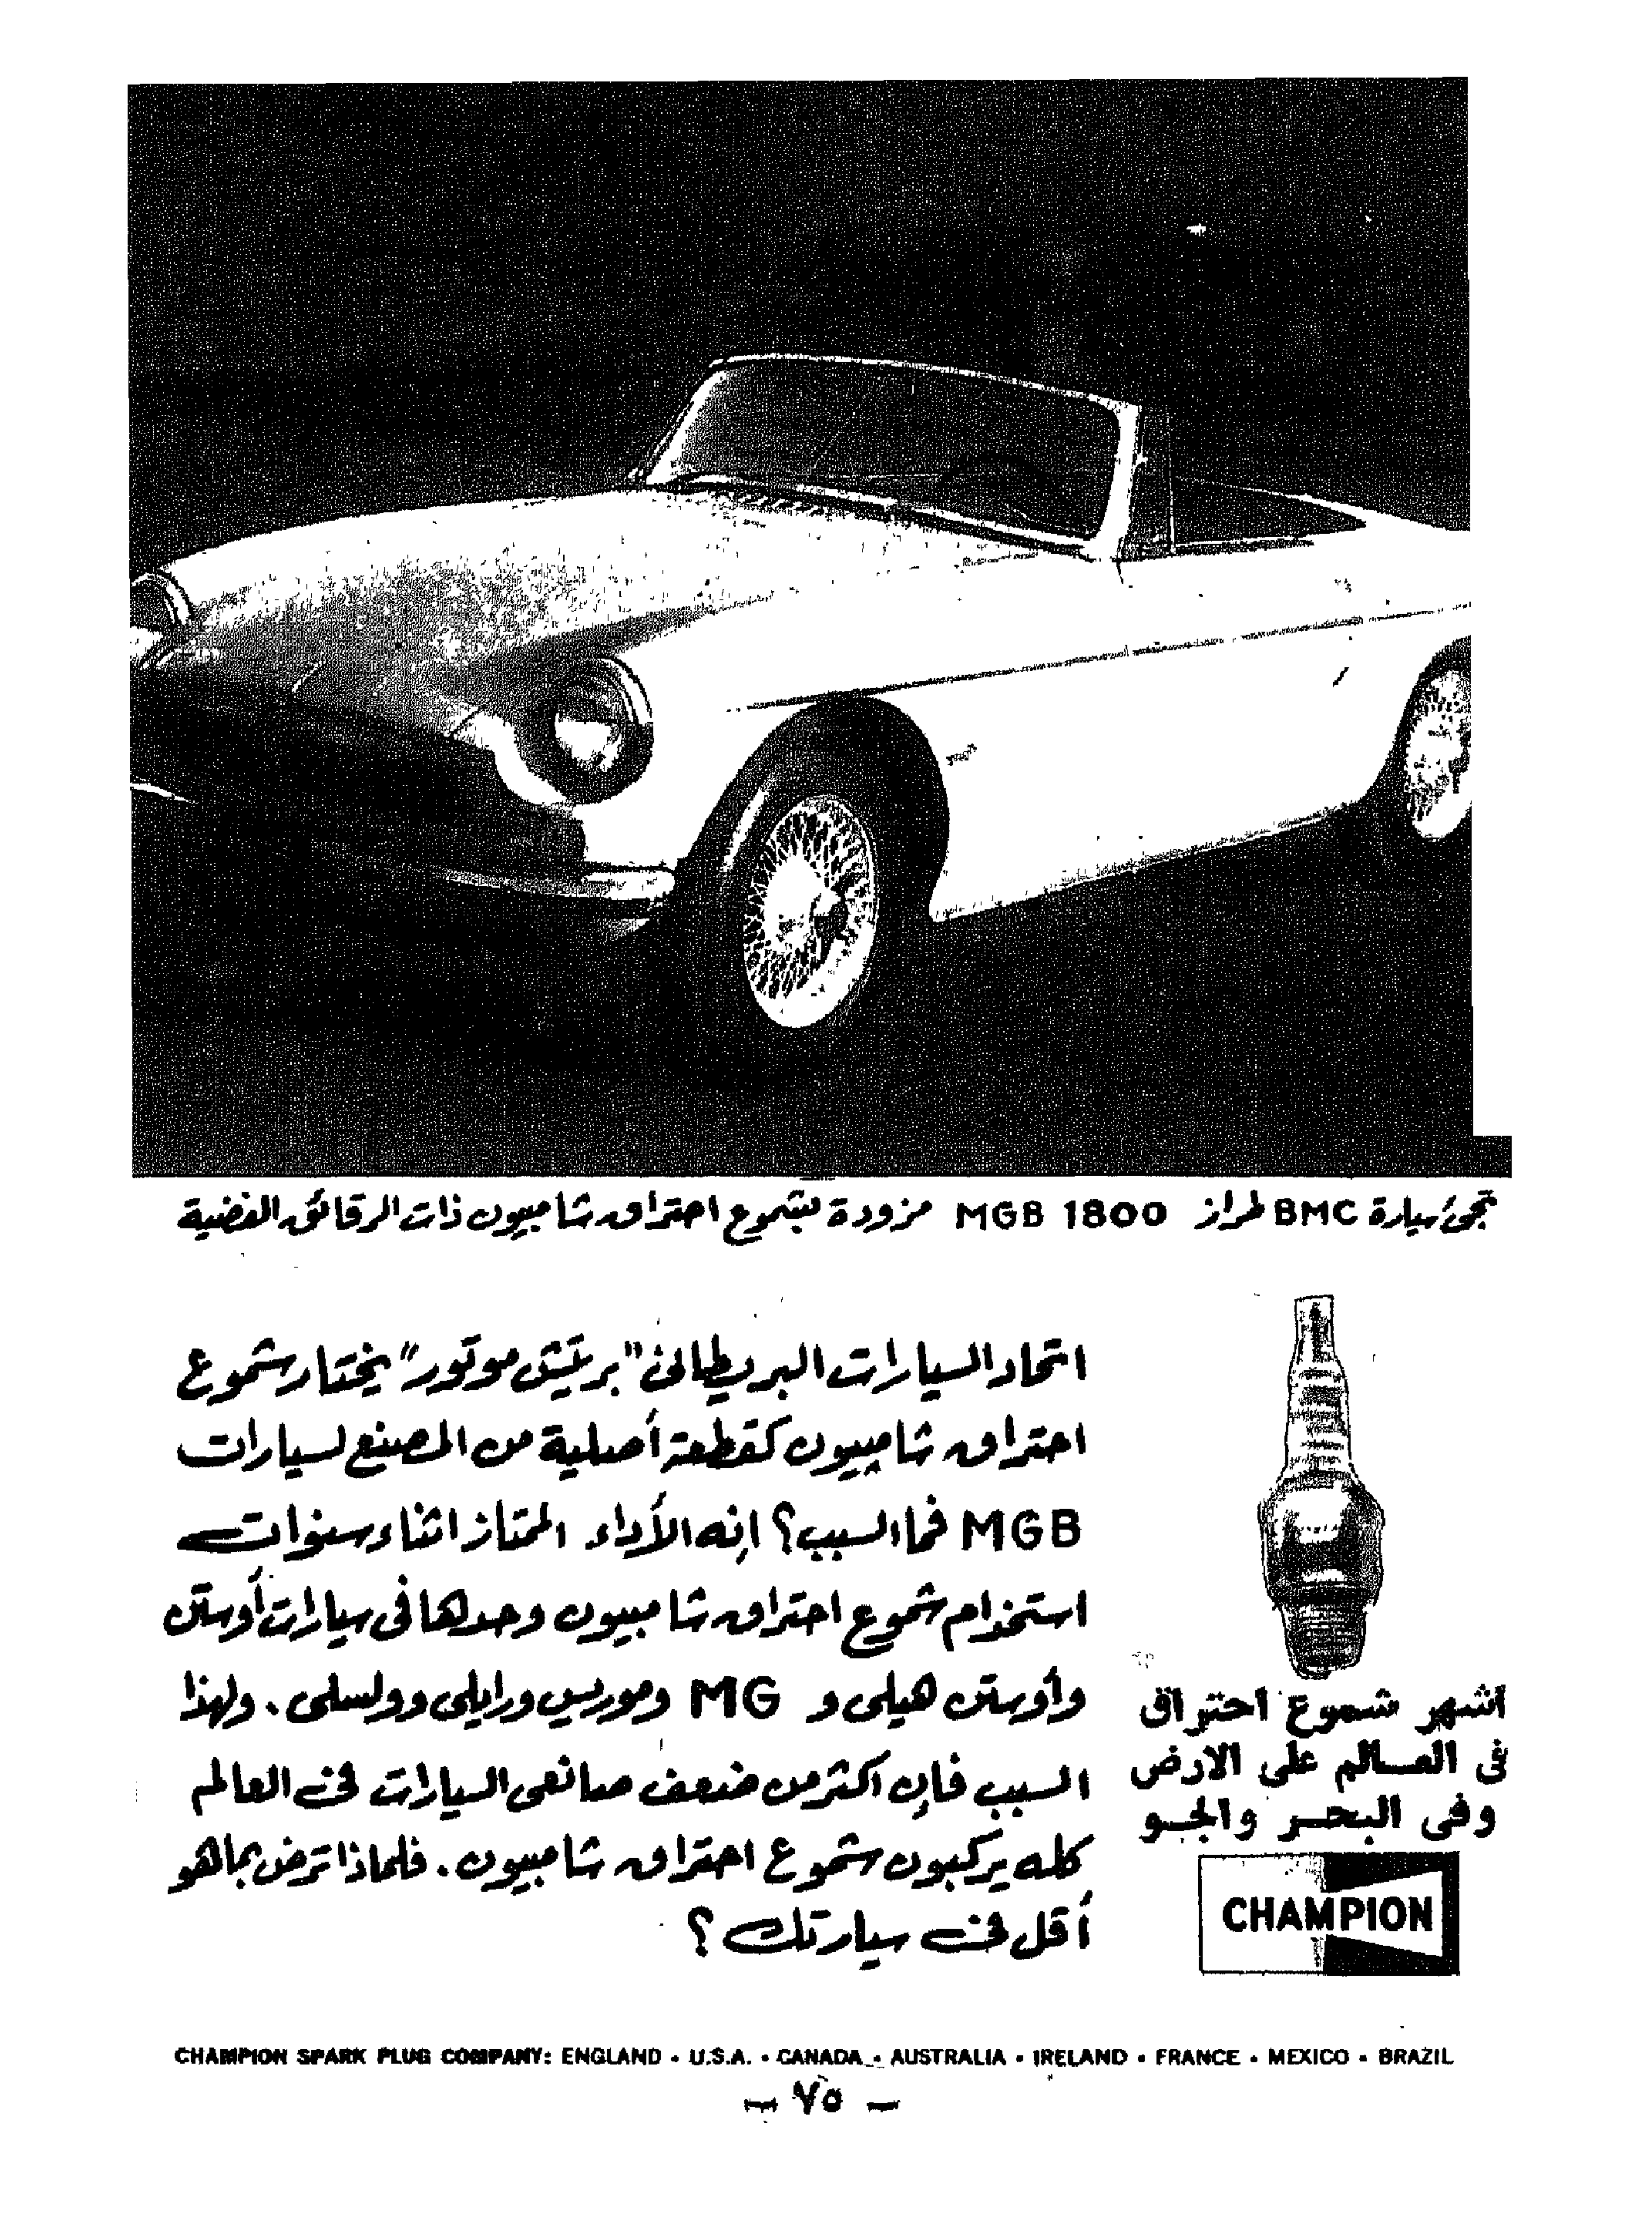 تجئ سيارة BMC طراز MGB 1800 مزودة بشموع احتراق شامبيون ذات الرقائق الفضية
اتحاد السيارات البريطانى "بريتش موتور" يختار شموع
احتراق شامبيون كقطعة أصلية من المصنع لسيارات
MGB فما السبب؟ إنه الأداء الممتاز اثناء سنوات
استخدام شموع احتراق شامبيون وحدها فى سيارات أوستن
وأوستن هيلى و MG وموريس ورايلى وولسلى. ولهذا
السبب فإن اكثر من ضعف صانعى السيارات فى العالم
كله يركبون شموع احتراق شامبيون. فلماذا ترضى بما هو
أقل فى سيارتك ؟
اشهر شموع احتراق
فى العالم على الارض
وفى البحر والجو
CHAMPION
CHAMPION SPARK PLUG COMPANY: ENGLAND • U.S.A. • CANADA • AUSTRALIA • IRELAND • FRANCE • MEXICO • BRAZIL
— ٧٥ —